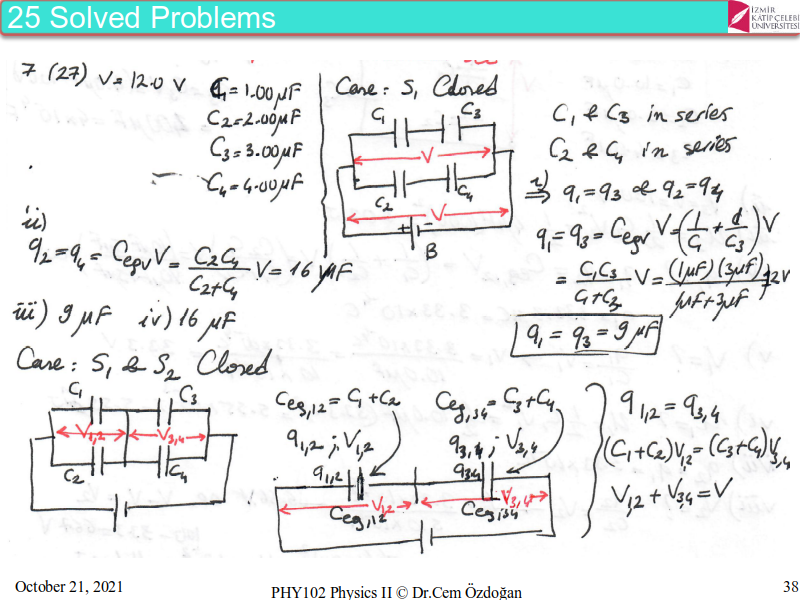 25 Solved Problems
İZMİR
KATİP ÇELEBİ
ÜNİVERSİTESİ
7 (27) V=12.0 V
C₁=1.00μF
C₂=2.00μF
C₃=3.00μF
C₄=4.00μF
Case: S₁ Closed
C₁ C₃
V
C₂ C₄
V
+ -
B
C₁ & C₃ in series
C₂ & C₄ in series
i)
⇒ q₁=q₃ & q₂=q₄
q₁=q₃=Ceqv V=(1/C₁+1/C₃)V
=C₁C₃/(C₁+C₃) V=(1μF)(3μF)/(μF+3μF) 12V
q₁=q₃=9μF
ii)
q₂=q₄=Ceqv V=C₂C₄/(C₂+C₄) V=16 μF
iii) 9μF iv) 16 μF
Case: S₁ & S₂ Closed
C₁ C₃
V₁,₂ V₃,₄
C₂ C₄
Ceq,12=C₁+C₂ Ceq,34=C₃+C₄
q₁,₂ ; V₁,₂ q₃,₄ ; V₃,₄
q₁,₂ q₃₄
V₁,₂ V₃,₄
Ceq,12 Ceq,34
q₁,₂=q₃,₄
(C₁+C₂)V₁,₂=(C₃+C₄)V₃,₄
V₁,₂+V₃,₄=V
October 21, 2021
PHY102 Physics II © Dr.Cem Özdoğan
38